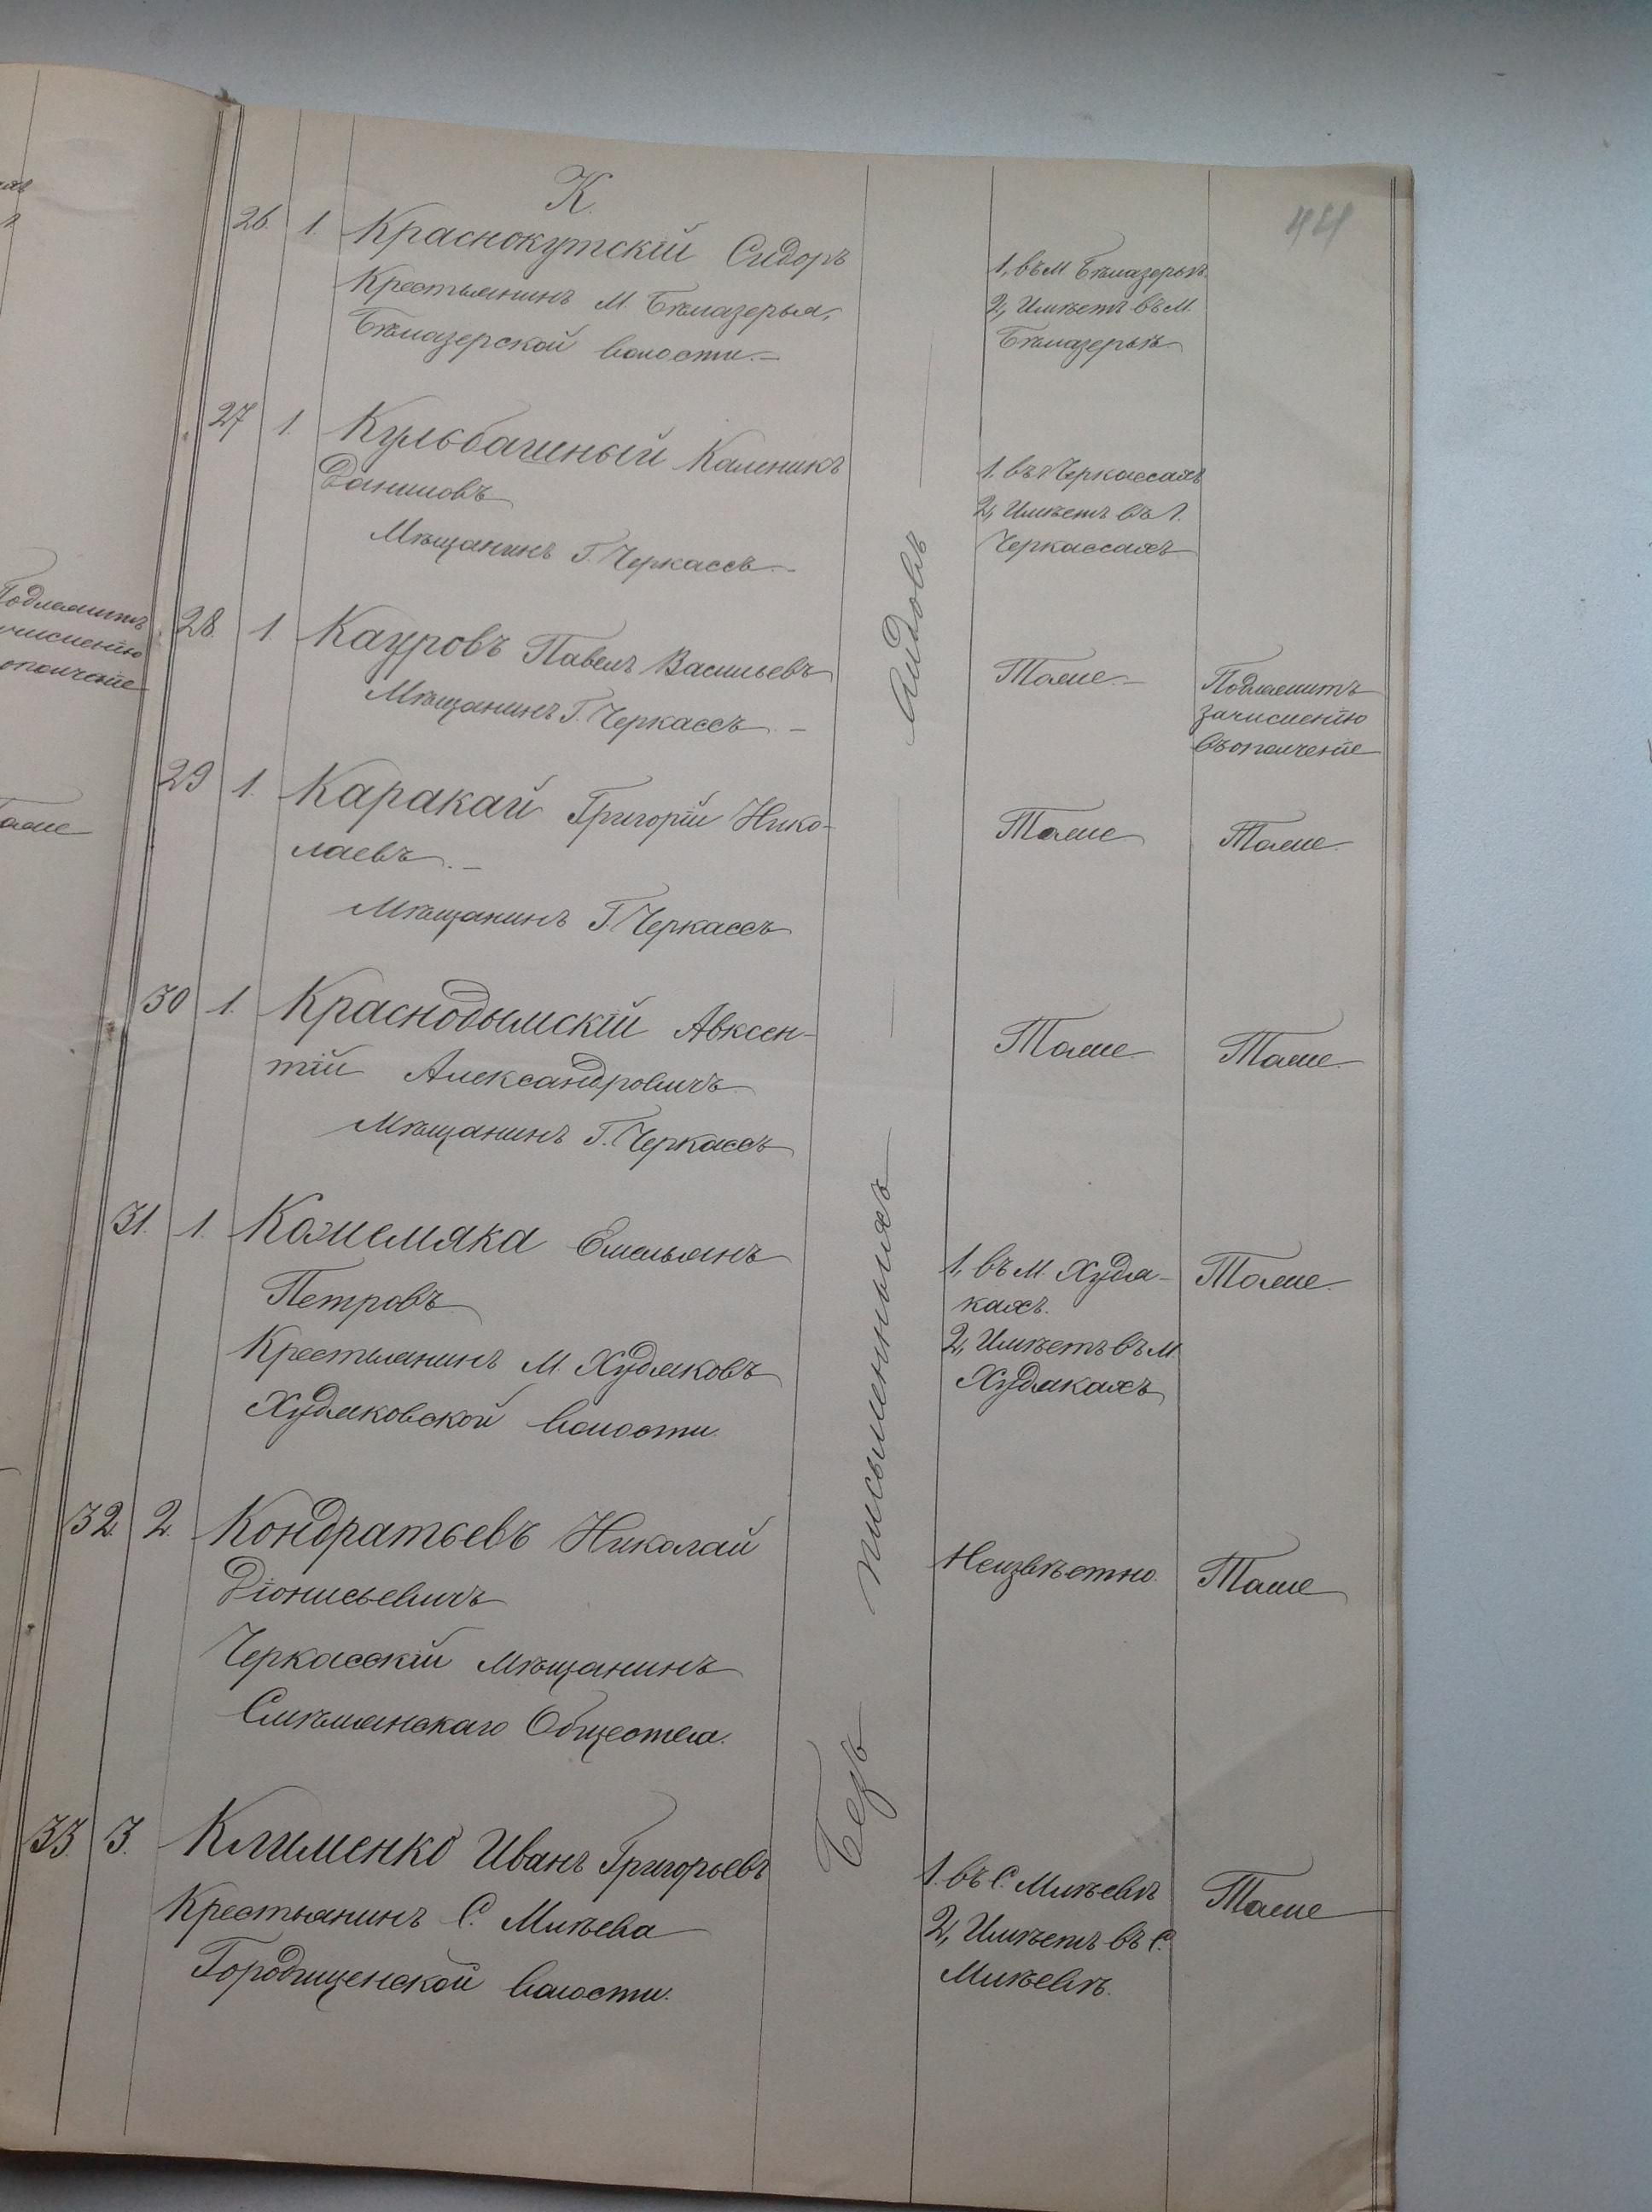 К.
26. 1. Краснокутскій Сидоръ
Крестьянинъ М. Бѣлазерья,
Бѣлазерской волости.—
1, въ М Бѣлазерьѣ.
2, Имѣетъ въ М.
Бѣлазерьѣ.
27 1. Кульбашный Каленикъ
Даниловъ
Мѣщанинъ Г. Черкассъ.—
1. въ г Черкассахъ
2, Имѣетъ въ г.
Черкассахъ
28. 1 Кауровъ Павелъ Васильевъ
Мѣщанинъ Г. Черкассъ.—
Тоже.—
Подлежитъ
зачисленію
въ ополченіе
29 1. Каракай Григорій Нико-
лаевъ.—
Мѣщанинъ Г. Черкассъ
Тоже
Тоже.
30 1. Краснодымскій Авксен-
тій Александровичъ
Мѣщанинъ Г. Черкассъ
Тоже
Тоже.
31. 1. Кожемяка Емельянъ
Петровъ
Крестьянинъ М. Худяковъ
Худяковской волости.
1, въ М. Худя-
кахъ.
2, Имѣетъ въ М
Худякахъ
Тоже.
32 2. Кондратьевъ Николай
Діонисьевичъ
Черкасскій мѣщанинъ
Смѣлянскаго Общества.
Неизвѣстно.
Тоже
33. 3. Клименко Иванъ Григорьевъ
Крестьянинъ С. Млѣева
Городищенской волости.
1. въ С. Млѣевѣ
2, Имѣетъ въ С.
Млѣевѣ.
Тоже
Безъ письменныхъ видовъ
Подлежитъ
зачисленію
ополченіе
Тоже